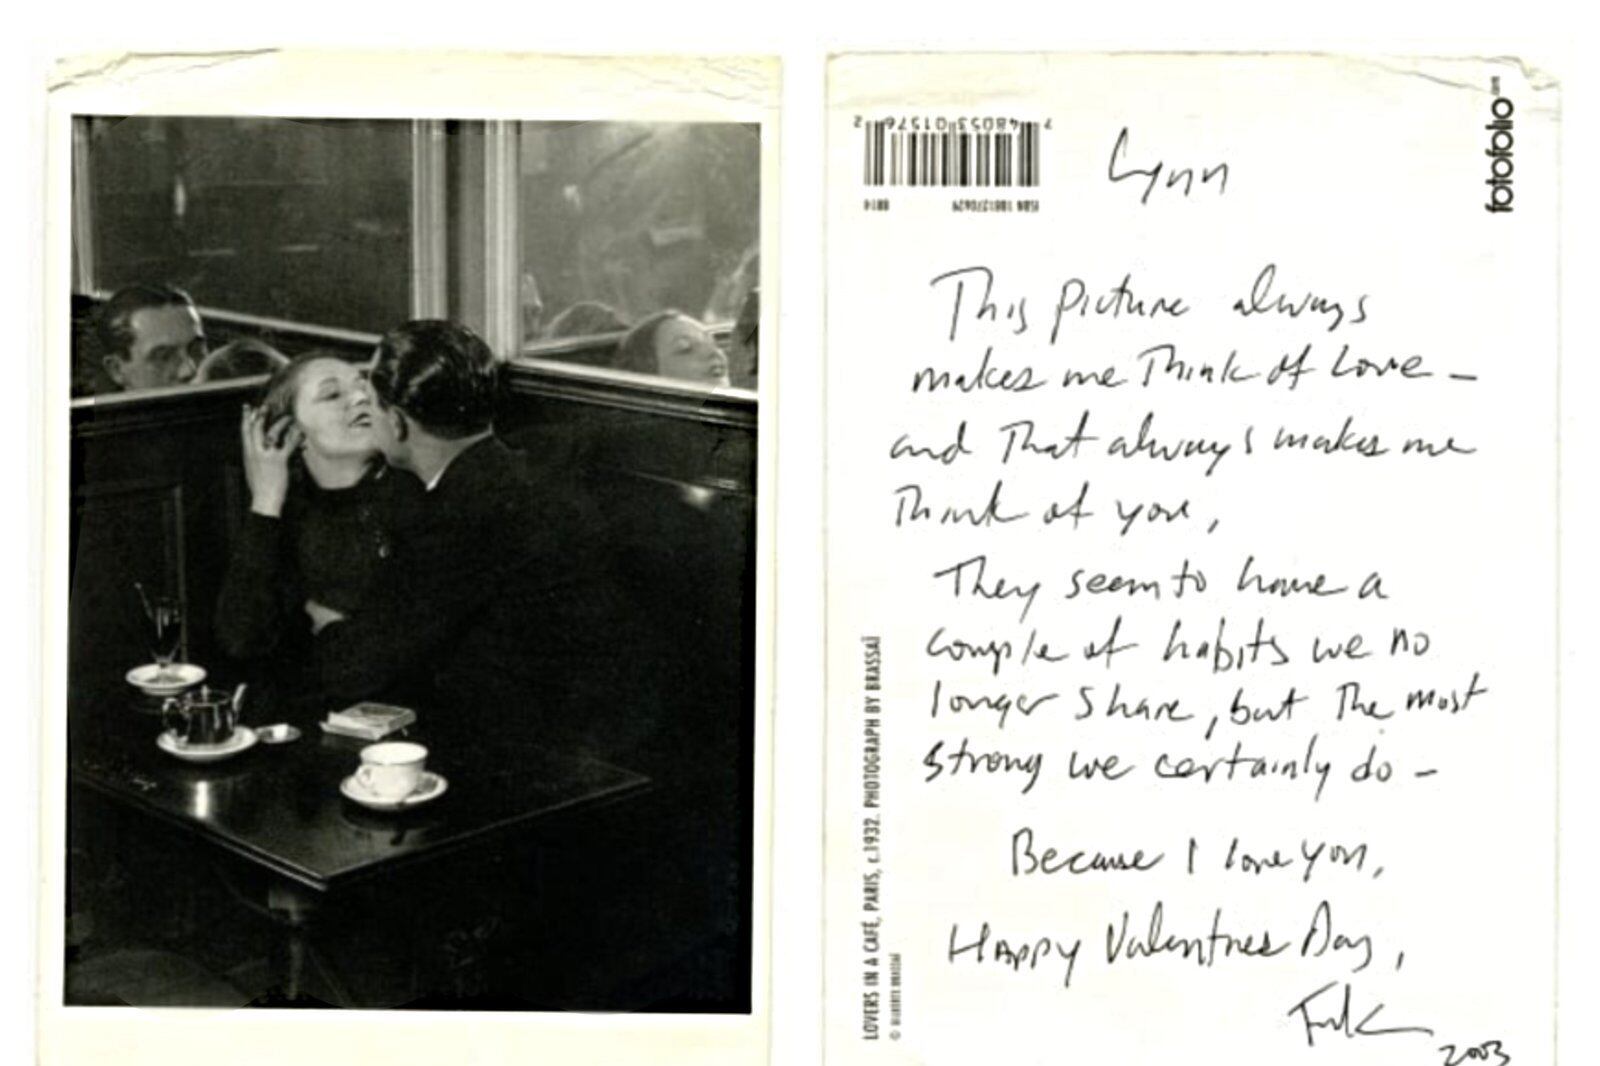 7 48053 01576 2
ISBN 1881270629
8814
fotofolio
.com
Lynn
This picture always
makes me think of Love –
and that always makes me
think of you,
They seem to have a
couple of habits we no
longer share, but the most
strong we certainly do –
Because I love you,
Happy Valentines Day,
2003
LOVERS IN A CAFÉ, PARIS, c.1932. PHOTOGRAPH BY BRASSAÏ
© GILBERTE BRASSAÏ